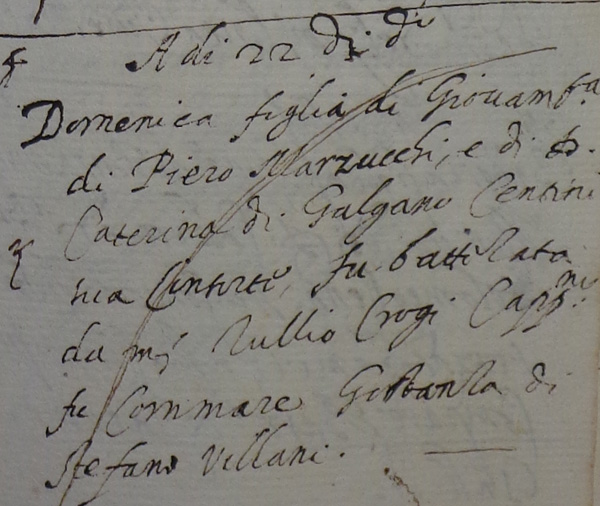 A di 22 di di
Domenica figlia di Giovamb.ta
di Piero Marzucchi, e di D.
Caterina di Galgano Centini
sua Consorte, fu battezata
da me Tullio Crogi Capp.no
fu Commare Gostanza di
Stefano Villani.